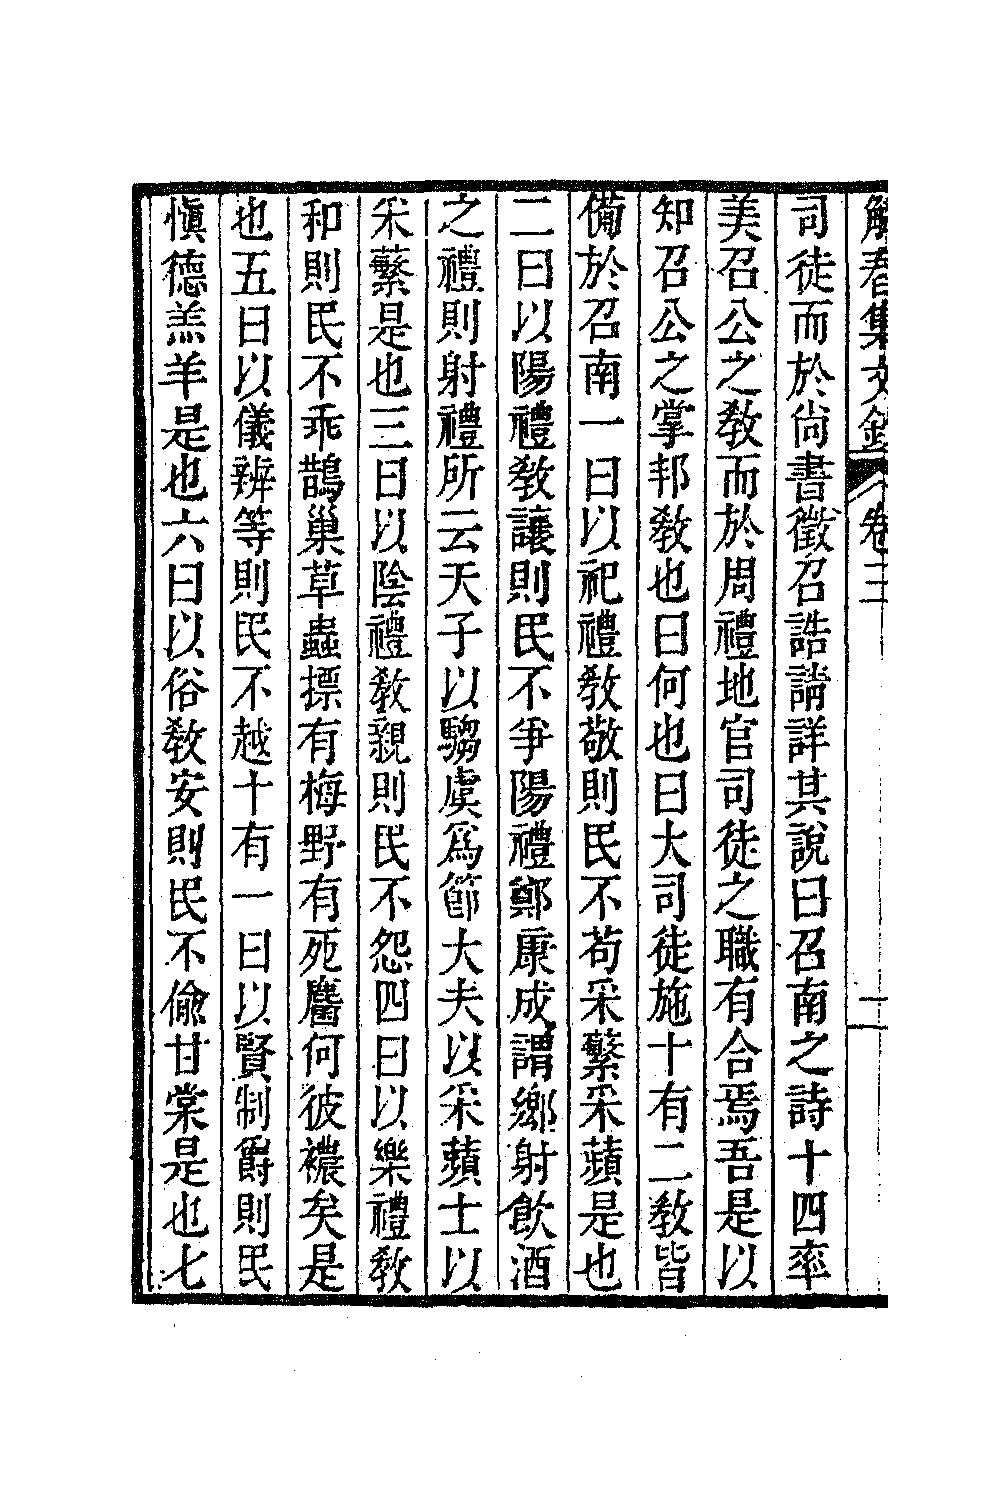 解舂集文鈔 卷三 二
司徒而於尙書徵召誥請詳其說曰召南之詩十四率
美召公之敎而於周禮地官司徒之職有合焉吾是以
知召公之掌邦敎也曰何也曰大司徒施十有二敎皆
備於召南一曰以祀禮敎敬則民不苟采蘩采蘋是也
二曰以陽禮敎讓則民不爭陽禮鄭康成謂鄕射飮酒
之禮則射禮所云天子以騶虞爲節大夫以采蘋士以
采蘩是也三曰以陰禮敎親則民不怨四曰以樂禮敎
和則民不乖鵲巢草蟲摽有梅野有死麕何彼襛矣是
也五曰以儀辨等則民不越十有一曰以賢制爵則民
愼德羔羊是也六曰以俗敎安則民不偷甘棠是也七